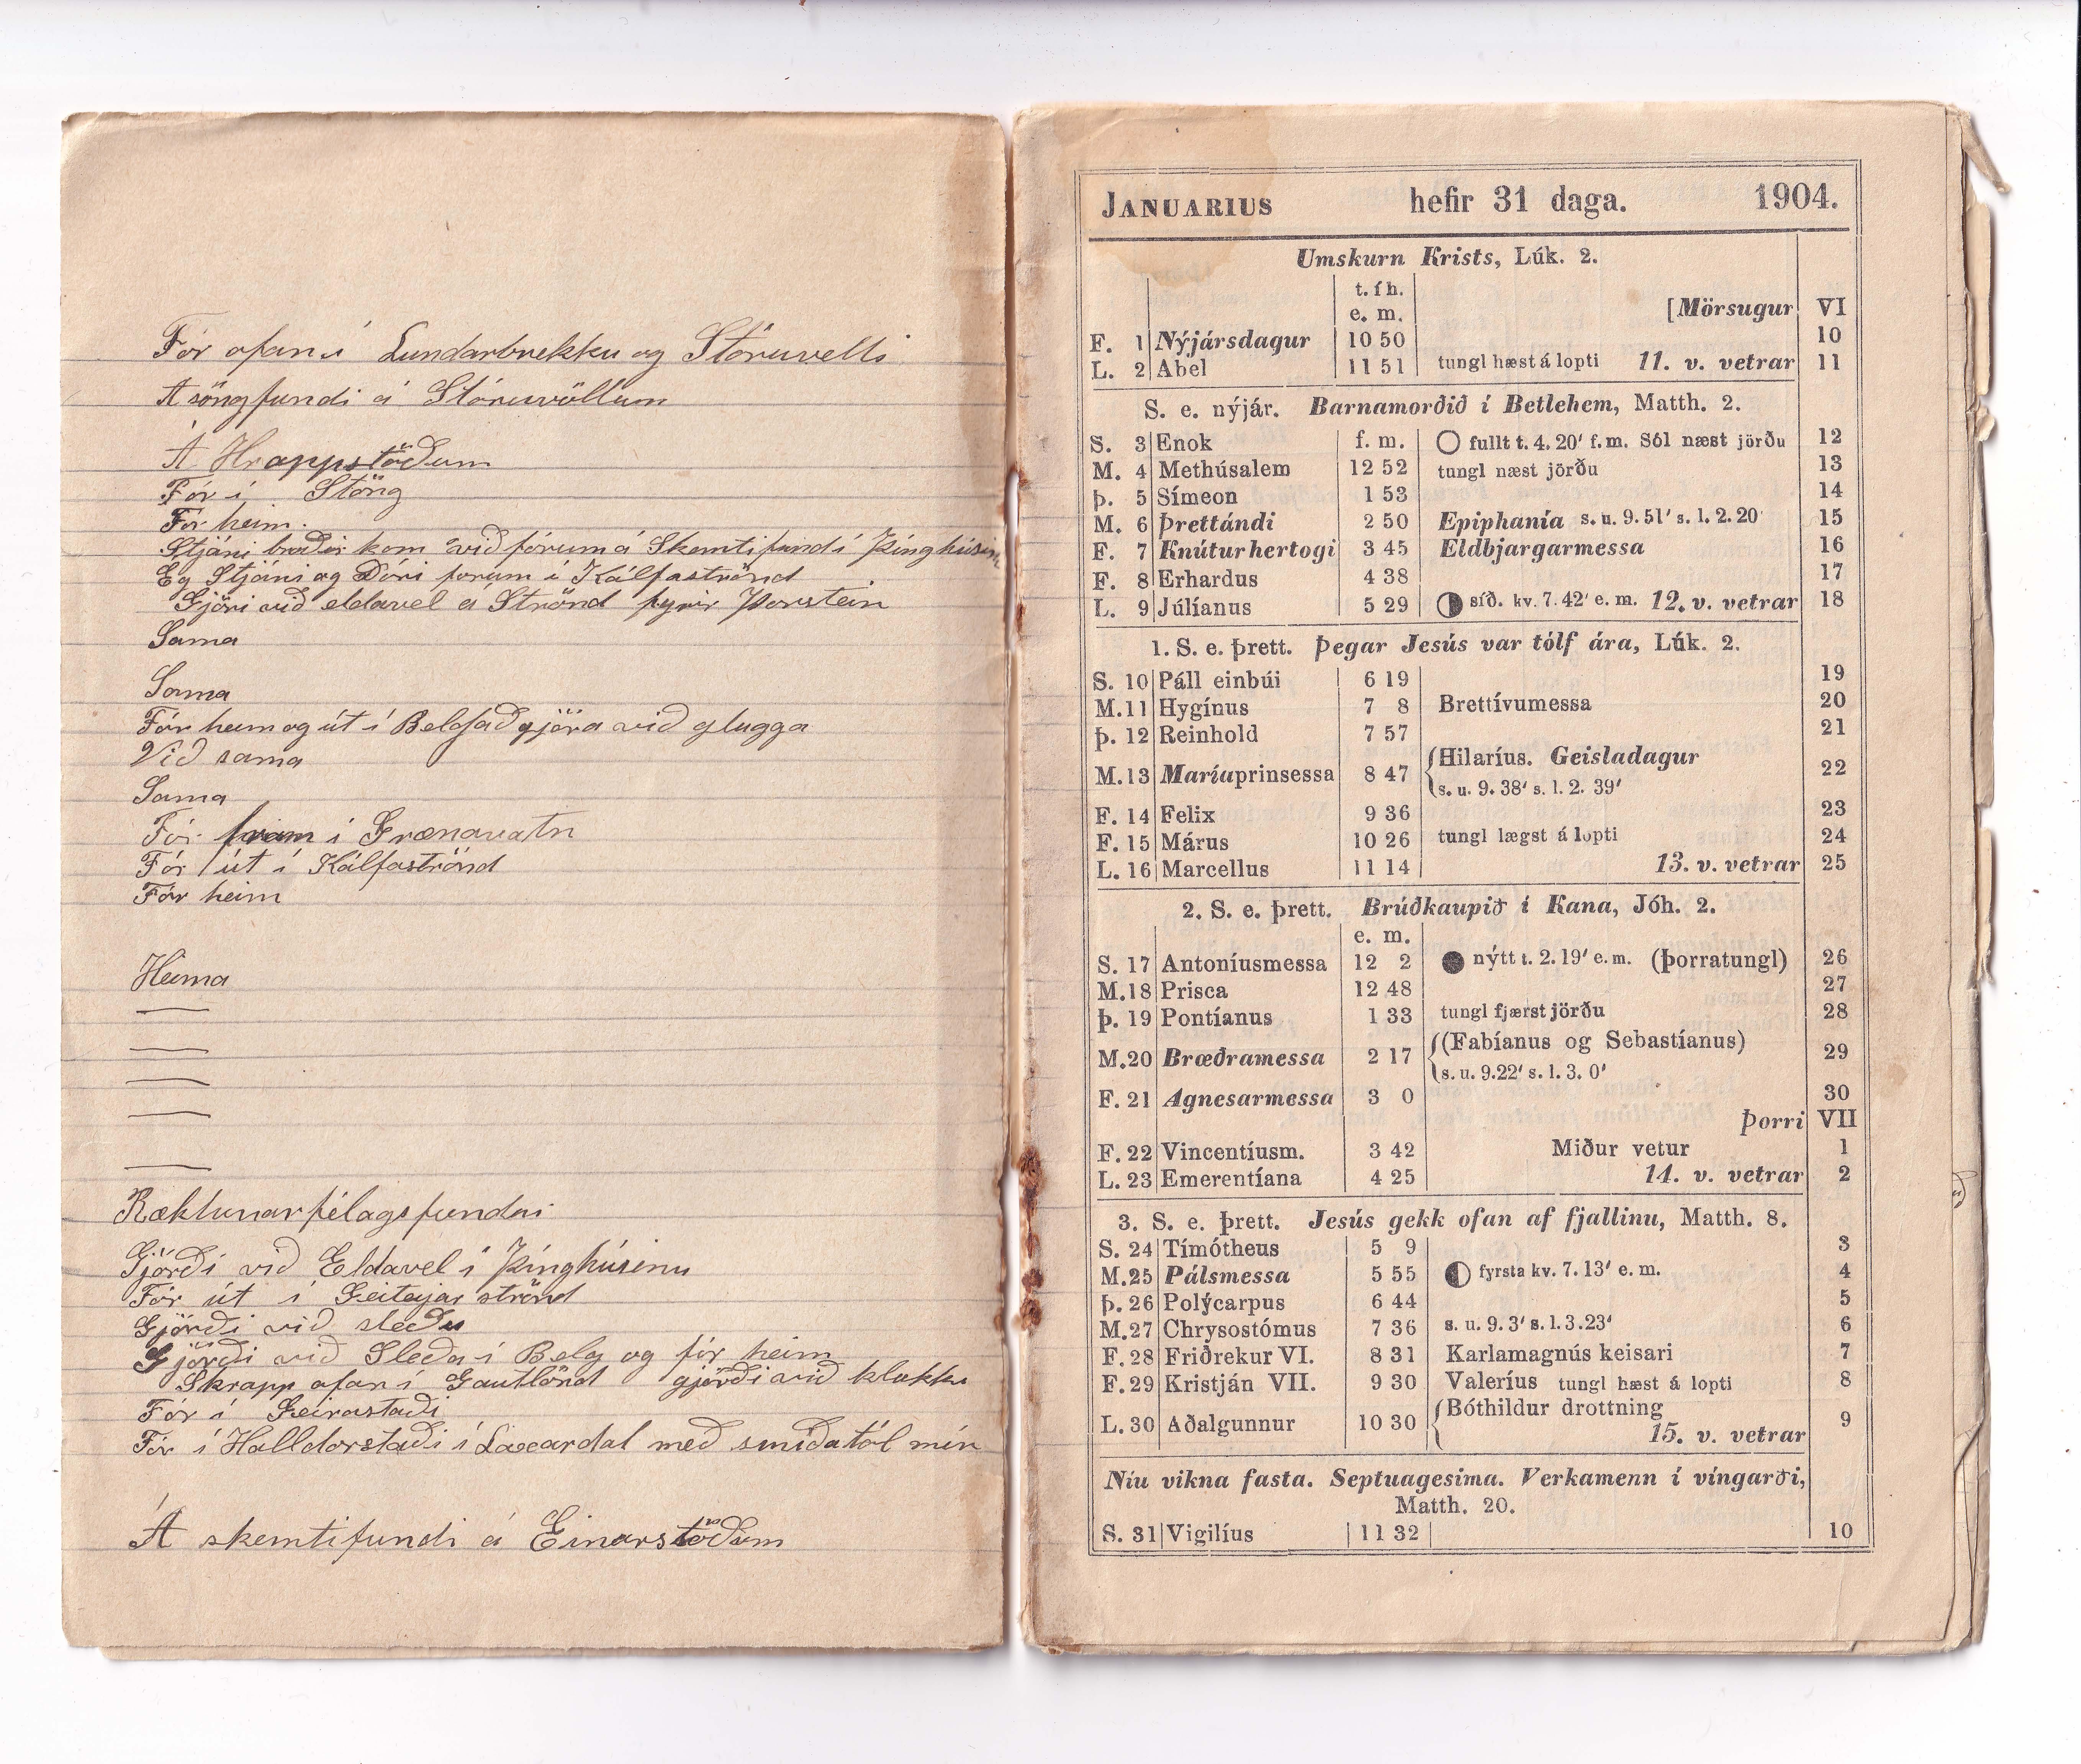 Fór ofan í Lundarbrekku og Stóruvelli
Á söngfundi á Stóruvöllum
Á Hrappstöðum
Fór í Stöng
Fór heim.
Stjáni broðir kom við fórum á Skemtifund í Þínghúsin
Eg Stjáni og Dóri forum í Kálfaströnd
Gjöri við eldavel á Strönd fyrir Þorstein
Sama
Sama
Fór heim og út í Belg að gjöra við glugga
Við sama
Sama
Fór fram í Grænavatn
Fór út í Kálfaströnd
Fór heim
Heima
—
—
—
—
—
Ræktunarfélagsfundri
Gjörði við Eldavel í Þínghúsinu
Fór út í Geiteyjarströnd
Gjörði við sleða
Gjörði við Sleða í Belg og fór heim
Skrapp ofan í Gautlönd gjörði við klukku
Fór í Geirastaði
Fór í Halldorstaði í Laxardal með smiðatól mín
Á skemtifundi á Einarstöðum
JANUARIUS hefir 31 daga. 1904.
Umskurn Krists, Lúk. 2.
t. í h.
e. m. [Mörsugur VI
F. 1 Nýjársdagur 10 50 10
L. 2 Abel 11 51 tungl hæst á lopti 11. v. vetrar 11
S. e. nýjár. Barnamorðið í Betlehem, Matth. 2.
S. 3 Enok f. m. ○ fullt t. 4. 20′ f. m. Sól næst jörðu 12
M. 4 Methúsalem 12 52 tungl næst jörðu 13
Þ. 5 Símeon 1 53 14
M. 6 Þrettándi 2 50 Epiphanía s. u. 9. 51′ s. l. 2. 20′ 15
F. 7 Knútur hertogi 3 45 Eldbjargarmessa 16
F. 8 Erhardus 4 38 17
L. 9 Júlíanus 5 29 ◑ síð. kv. 7. 42′ e. m. 12. v. vetrar 18
1. S. e. þrett. Þegar Jesús var tólf ára, Lúk. 2.
S. 10 Páll einbúi 6 19 19
M. 11 Hygínus 7 8 Brettívumessa 20
Þ. 12 Reinhold 7 57 21
M. 13 Maríaprinsessa 8 47 {Hilaríus. Geisladagur 22
s. u. 9. 38′ s. l. 2. 39′
F. 14 Felix 9 36 23
F. 15 Márus 10 26 tungl lægst á lopti 24
L. 16 Marcellus 11 14 13. v. vetrar 25
2. S. e. þrett. Brúðkaupið í Kana, Jóh. 2.
e. m.
S. 17 Antoníusmessa 12 2 ● nýtt t. 2. 19′ e. m. (þorratungl) 26
M. 18 Prisca 12 48 27
Þ. 19 Pontíanus 1 33 tungl fjærst jörðu 28
M. 20 Bræðramessa 2 17 {(Fabíanus og Sebastíanus) 29
s. u. 9.22′ s. l. 3. 0′
F. 21 Agnesarmessa 3 0 30
Þorri VII
F. 22 Vincentíusm. 3 42 Miður vetur 1
L. 23 Emerentíana 4 25 14. v. vetrar 2
3. S. e. þrett. Jesús gekk ofan af fjallinu, Matth. 8.
S. 24 Tímótheus 5 9 3
M. 25 Pálsmessa 5 55 ◐ fyrsta kv. 7. 13′ e. m. 4
Þ. 26 Polýcarpus 6 44 5
M. 27 Chrysostómus 7 36 s. u. 9. 3′ s. l. 3. 23′ 6
F. 28 Friðrekur VI. 8 31 Karlamagnús keisari 7
F. 29 Kristján VII. 9 30 Valeríus tungl hæst á lopti 8
L. 30 Aðalgunnur 10 30 {Bóthildur drottning 9
15. v. vetrar
Níu vikna fasta. Septuagesima. Verkamenn í víngarði,
Matth. 20.
S. 31 Vigilíus 11 32 10